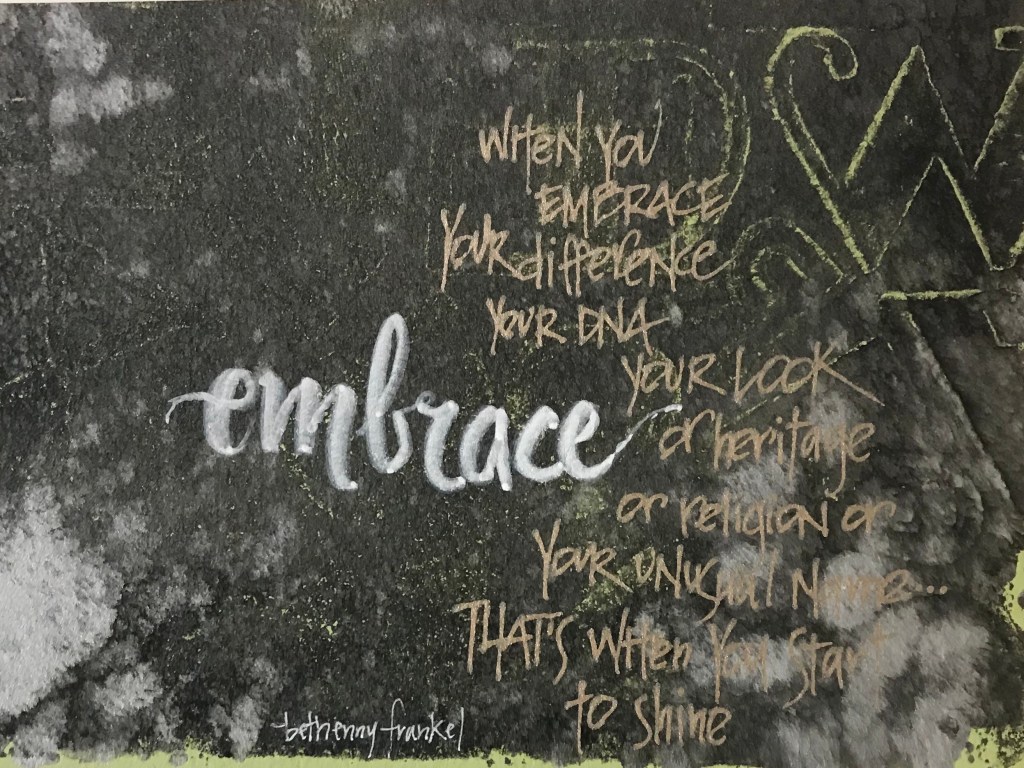 WHEN YOU
EMBRACE
YOUR difference
YOUR DNA
YOUR LOOK
or heritage
embrace
or religion or
YOUR UNUSUAL NAME...
THAT'S WHEN YOU START
to shine
-bethenny frankel